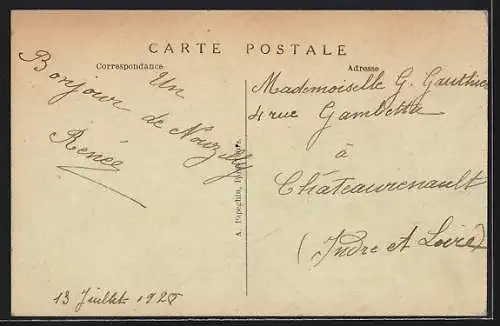 CARTE POSTALE
Correspondance
Adresse
Un
Bonjour
de Nouzilly
Renée
13 Juillet 192
A. Papeghin,
Mademoiselle G. Gauthier
4 rue Gambetta
à
Châteaurenault
(Indre et Loire)